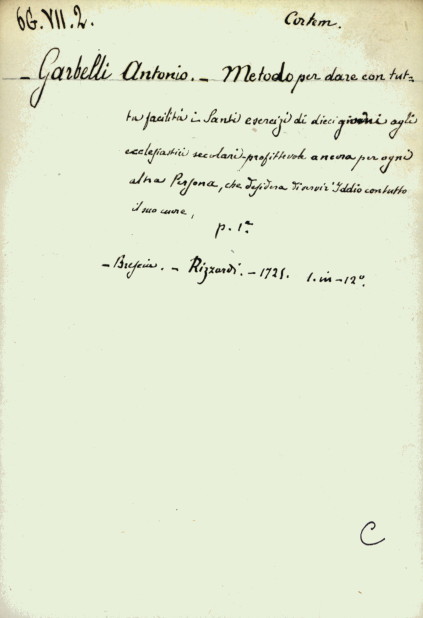 6G.VII.2. Cortem.
- Garbelli Antonio. - Metodo per dare con tut=
ta facilità i Santi esercizi di dieci giorni agli
ecclesiastici secolari profittevole ancora per ogni
altra Persona, che desidera di servir Iddio con tutto
il suo cuore,
p. 1.a
- Brescia. - Rizzardi. - 1725. 1. in - 12º.
C